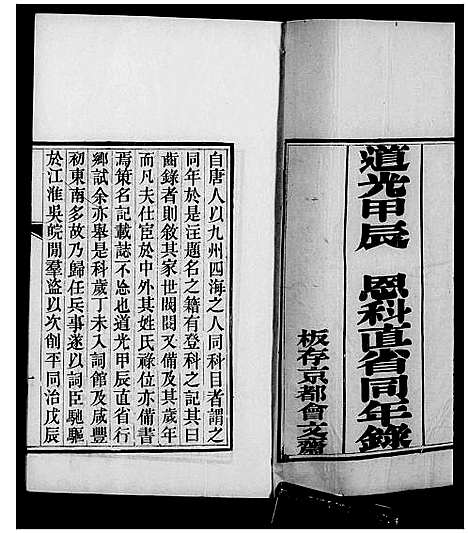 道光甲辰 恩科直省同年錄
板存京都會文齋
自唐人以九州四海之人同科目者謂之
同年於是汪題名之籍有登科之記其曰
齒錄者則敘其家世閥閱又備及其歲年
而凡夫仕宦於中外其姓氏祿位亦備書
焉策名記載誌不忘也道光甲辰直省行
鄉試余亦舉是科歲丁未入詞館及咸豐
初東南多故乃歸任兵事遂以詞臣馳驅
於江淮吳皖閒羣盜以次削平同治戊辰